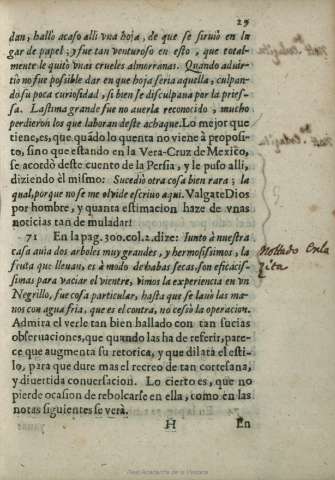 29
dan, hallò acaso alli vna hoja, de que se siruiò en lu
gar de papel; y fue tan venturoso en esto, que total-
mente le quitò vnas crueles almorranas. Quando aduir-
tiò no fue possible dar en que hoja seria aquella, culpan-
do su poca curiosidad, si bien se disculpaua por la prie-
sa. Lastima grande fue no auerla reconocido, mucho
perdieron los que laboran deste achaque. Lo mejor que
tiene, es, que quãdo lo quenta no viene à proposi-
to, sino que estando en la Vera-Cruz de Mexico,
se acordò deste cuento de la Persia, y le puso alli,
diziendo èl mismo: Sucediò otra cosa bien rara; la
qual, porque no se me olvide escriuo aqui. Valgate Dios
por hombre, y quanta estimacion haze de vnas
noticias tan de muladar!
71 En la pag. 300. col. 2. dize: Iunto à nuestra
casa auia dos arboles muy grandes, y hermosissimos, la
fruta que lleuan, es à modo de habas secas, son eficacis-
simas para vaciar el vientre, vimos la experiencia en vn
Negrillo, fue cosa particular, hasta que se lauò las ma-
nos con agua fria, que es el contra, no cessò la operacion.
Admira el verle tan bien hallado con tan sucias
obseruaciones, que quando las ha de referir, pare-
ce que augmenta su retorica, y que dilata el esti-
lo, para que dure mas el recreo de tan cortesana,
y diuertida conuersacion. Lo cierto es, que no
pierde ocasion de rebolcarse en ella, como en las
notas siguientes se verà.
H En
Nottado en la
zita
Real Academia de la Historia